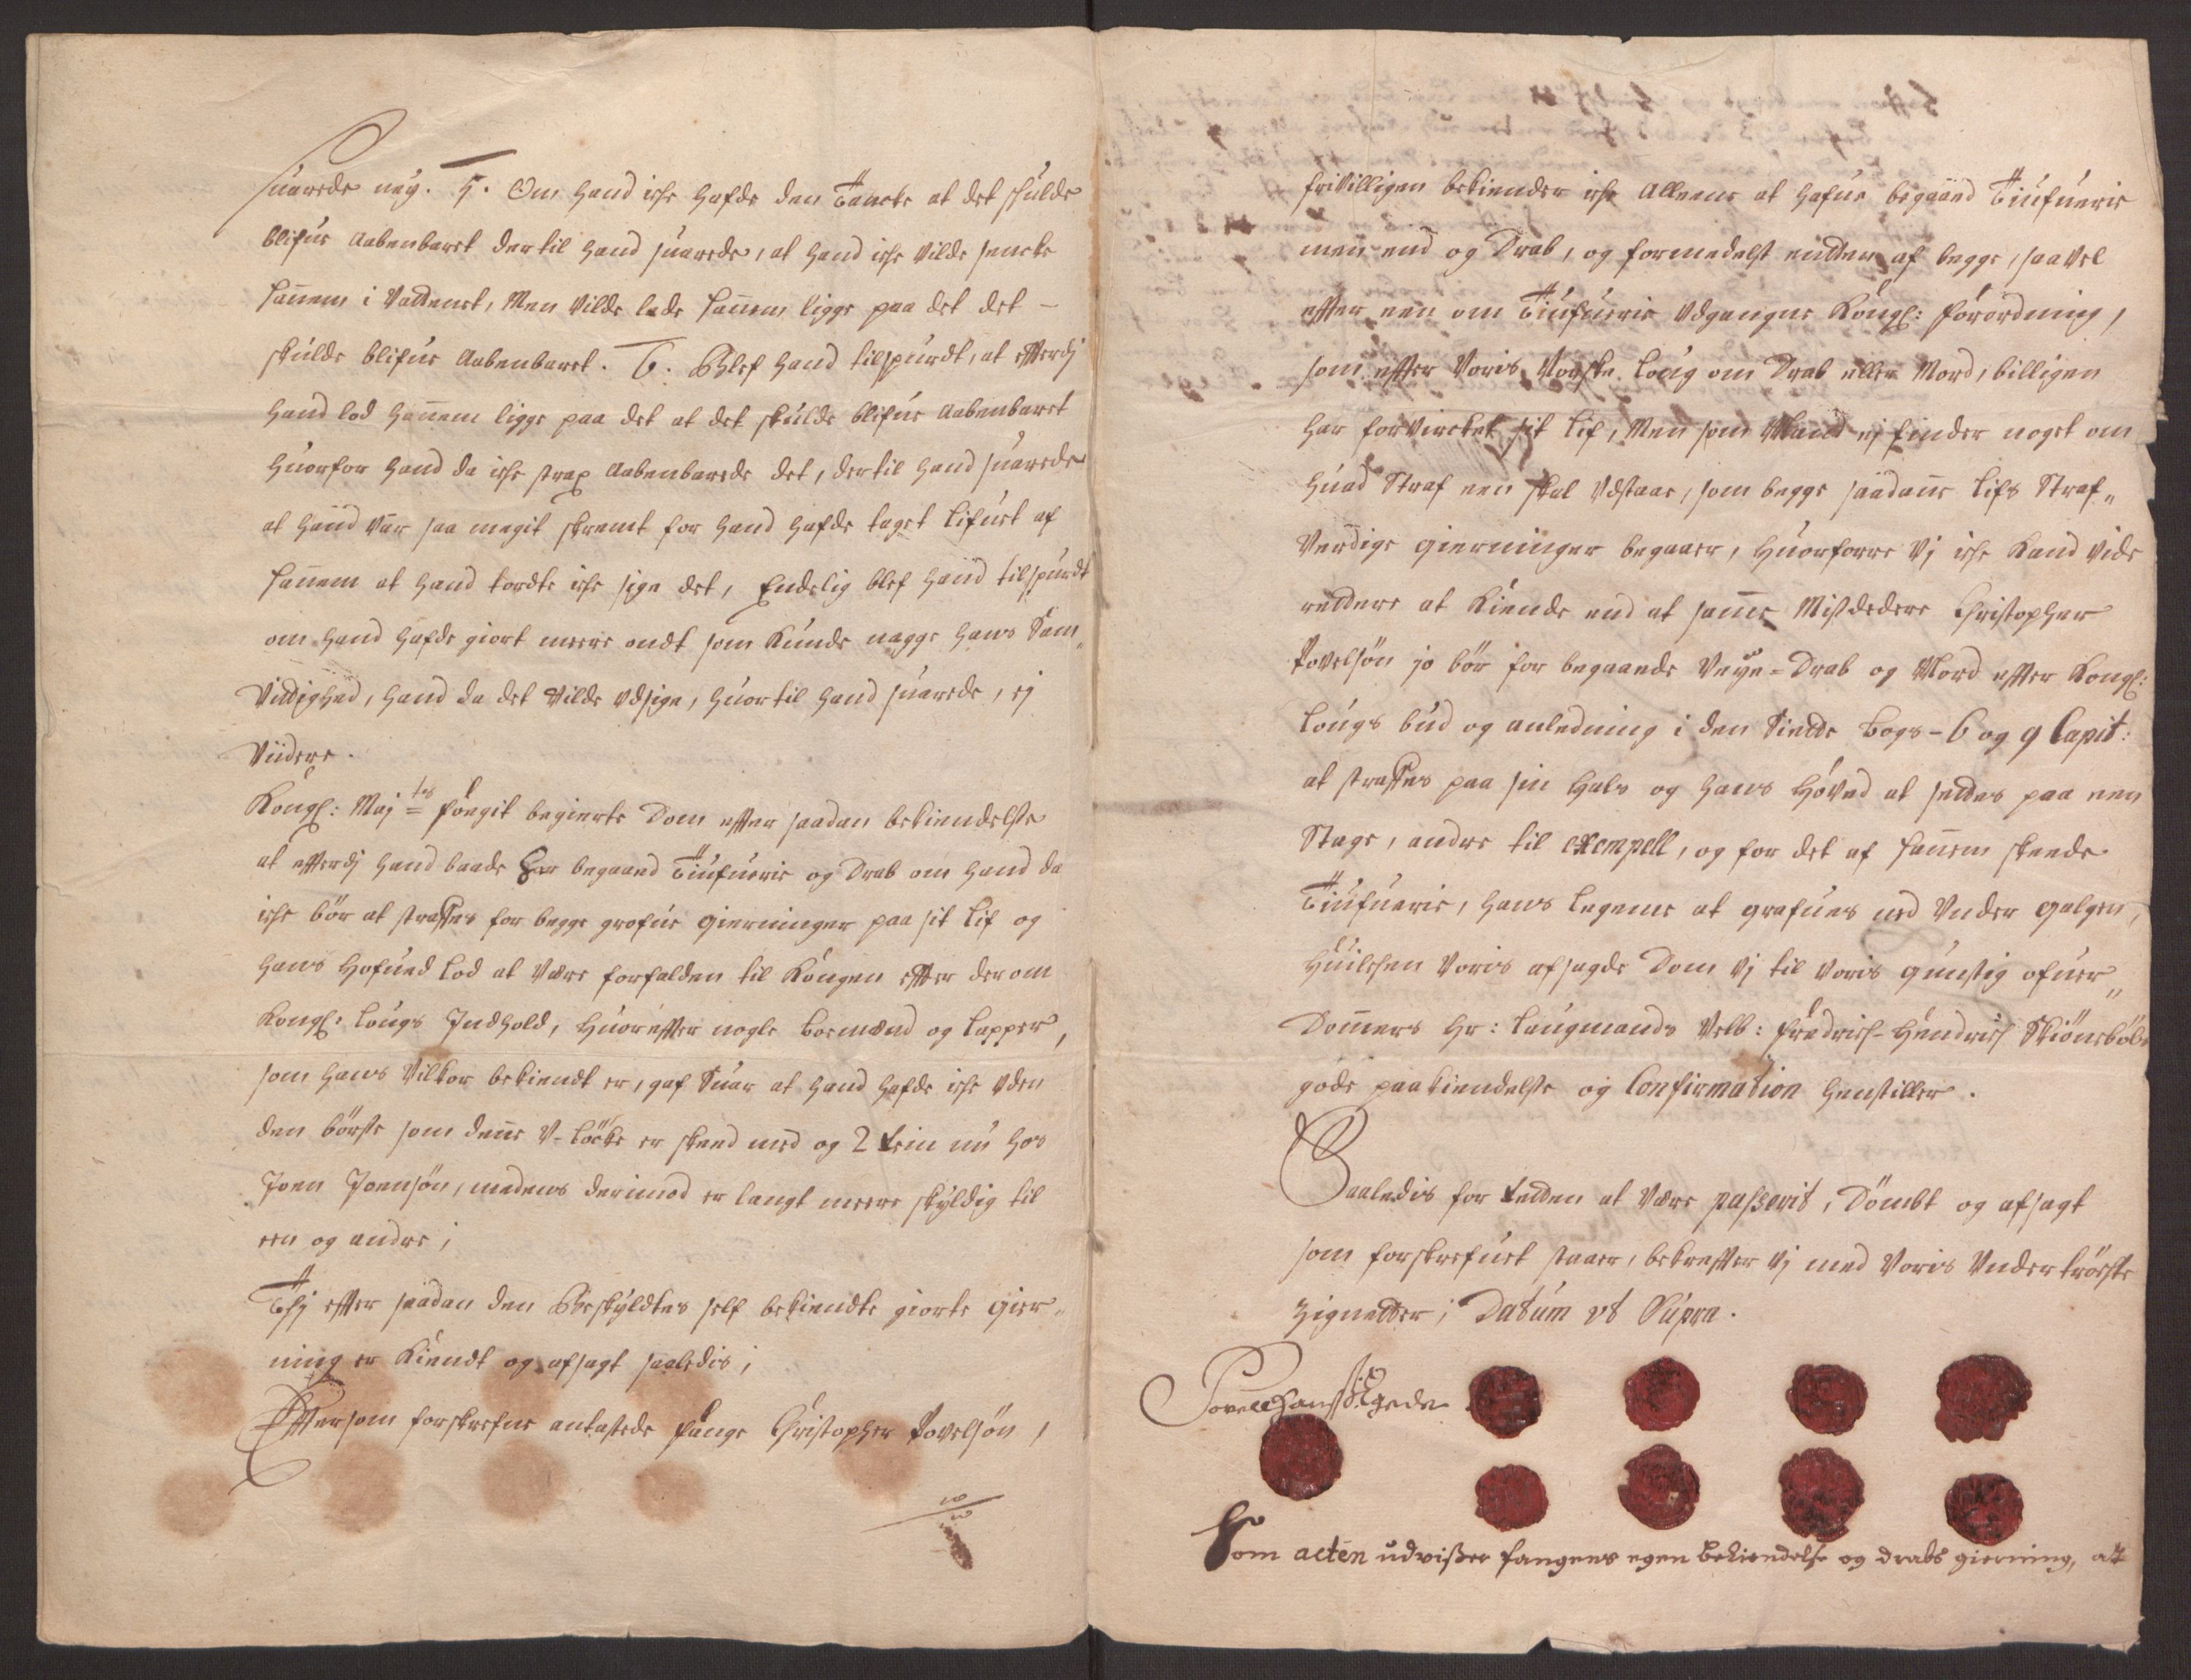 suarede ney. 5. Om hand iche hafde den Tancke at det skulde
blifue Aabenbaret der til hand suarede, at hand iche vilde sencke
hannem i Vattenet, Men vilde lade hannem ligge paa det det -
skulde blifue Aabenbaret. 6. Blef hand tilspurdt, at efterdj
hand lod hannem ligge paa det at det skulde blifue Aabenbaret
huorfor hand da iche strax Aabenbarede det, der til hand suarede
at hand var saa megit skremt for hand hafde taget Lifuet af
hannem at hand tordte iche sige det, Endelig blef hand tilspurdt
om hand hafde giort meere ondt som kunde nagge hans Sam„
vittighed, hand da det vilde udsige, huor til hand suarede, ej
viidere.
Kongl: Maj:tes fougit begierte Dom efter saadan bekiendelse
at efterdj hand baade har begaaed Tiufuerie og Drab om hand da
iche bör at straffes for begge grofue gierninger paa sit Lif og
hans hofued Lod at være forfalden til Kongen efter der om
Kongl: Lougs Indhold, huor efter nogle boemænd og Lapper,
som hans vilkor bekiendt er, gaf suar at hand hafde iche uden
den börse som denne U-löcke er skeed med og 2 Rein nu hos
Joen Joensön, medens derimod er langt meere skyldig til
een og andre;
Thj efter saadan den Beskyldtes self bekiendte giorte gier„
ning er kiendt og afsagt saaledis;
Eftersom forskrefne antastede fange Christopher Povelsön,
frivilligen bekiender iche alleene at hafue begaaed Tiufuerie
men end og Drab, og formedelst enten af begge, saa vel
efter een om Tiufuerie udgangne Kongl: forordning,
som efter voris Norske Loug om Drab eller Mord, billigen
har forvircket sit Lif, Men som Mand ej finder noget om
huad Straf een skal udstaae, som begge saadanne Lifs Straf„
verdige gierninger begaaer, huorforre vj iche kand vide
rettere at kiende end at samme Misdedere Christopher
Povelsön jo bör for begaaende Veye-Drab og Mord efter Kongl:
Lougs bud og anledning i den Siette bogs-6 og 9 Capit:
at straffes paa sin hals og hans hoved at settes paa een
Stage, andre til exempell, og for det af hannem skeede
Tiufuerie, hans Legeme at grafues ned under galgen,
huilchen voris afsagde Dom vj til voris gunstig ofuer„
Dommere Hr: Laugmands Velb: fredrich-Hendrich Skiönebôls
gode paakiendelse og Confirmation henstiller.
Saaledis for Retten at være passerit, Dömbt og afsagt
som forskrefuet staaer, bekrefter vj med voris undertröchte
Zignetter; Datum ut Supra.
Povell Hanss: Egede
Som acten udvisser fangens egen bekiendelse og drabs gierning, at